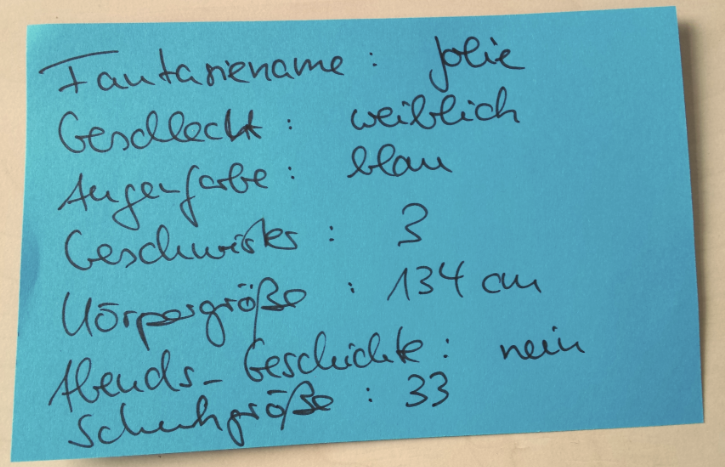 Fantasiename : Jolie
Geschlecht : weiblich
Augenfarbe : blau
Geschwister : 3
Körpergröße : 134 cm
Abends-Geschichte : nein
Schuhgröße : 33